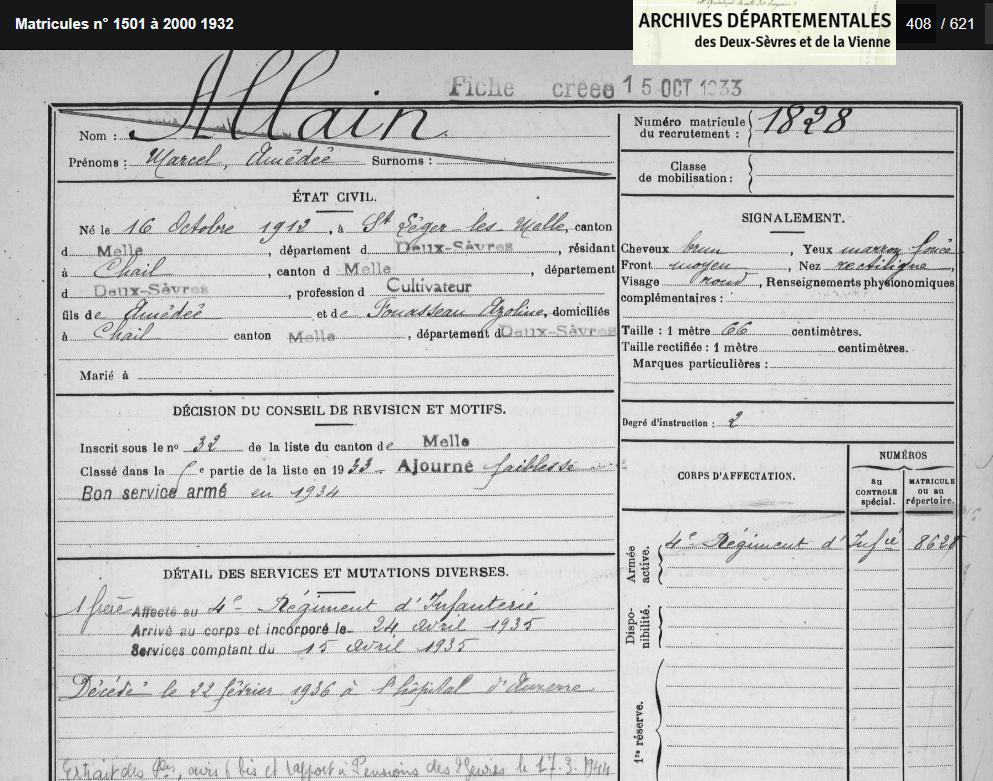 Matricules n° 1501 à 2000 1932
ARCHIVES DÉPARTEMENTALES
des Deux-Sèvres et de la Vienne
408 / 621
Fiche créée 15 OCT 1933
Nom : Allain
Prénoms : Marcel, Amédée Surnoms :
Numéro matricule du recrutement : 1828
Classe de mobilisation :
ÉTAT CIVIL.
Né le 16 Octobre 1912, à St Léger-les-Melle, canton
d Melle, département d Deux-Sèvres, résidant
à Chail, canton d Melle, département
d Deux-Sèvres, profession d Cultivateur
fils de Amédée et de Fouasseau Azoline, domiciliés
à Chail canton Melle, département d Deux-Sèvres
Marié à
SIGNALEMENT.
Cheveux brun, Yeux marron foncé
Front moyen, Nez rectiligne,
Visage rond, Renseignements physionomiques
complémentaires :
Taille : 1 mètre 66 centimètres.
Taille rectifiée : 1 mètre centimètres.
Marques particulières :
Degré d'instruction : 2
DÉCISION DU CONSEIL DE REVISION ET MOTIFS.
Inscrit sous le n° 32 de la liste du canton de Melle
Classé dans la e partie de la liste en 1933 - Ajourné faiblesse
Bon service armé en 1934
CORPS D'AFFECTATION.
NUMÉROS
au CONTROLE spécial.
MATRICULE ou au répertoire.
Armée active.
4e Régiment d'Infie 8628
Disponibilité.
1re réserve.
DÉTAIL DES SERVICES ET MUTATIONS DIVERSES.
1 frère Affecté au 4e Régiment d'Infanterie
Arrivé au corps et incorporé le 24 avril 1935
Services comptant du 15 avril 1935
Décédé le 22 février 1936 à l'hôpital d'Auxerre
Extrait des avis 6 bis et rapport à Pensions des le 17.3.1944